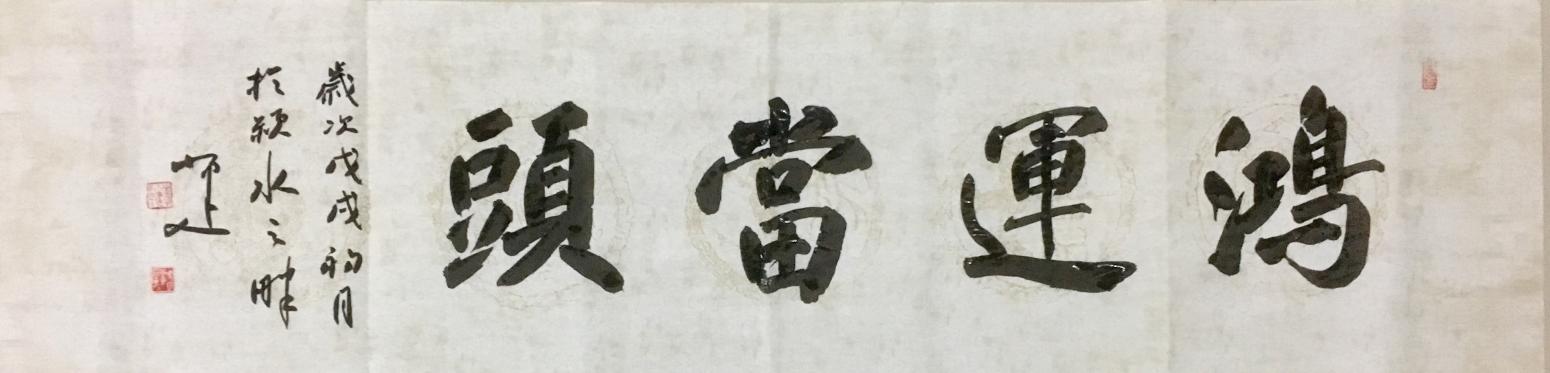 鴻運當頭
歲次戊戌初月
於潁水之畔